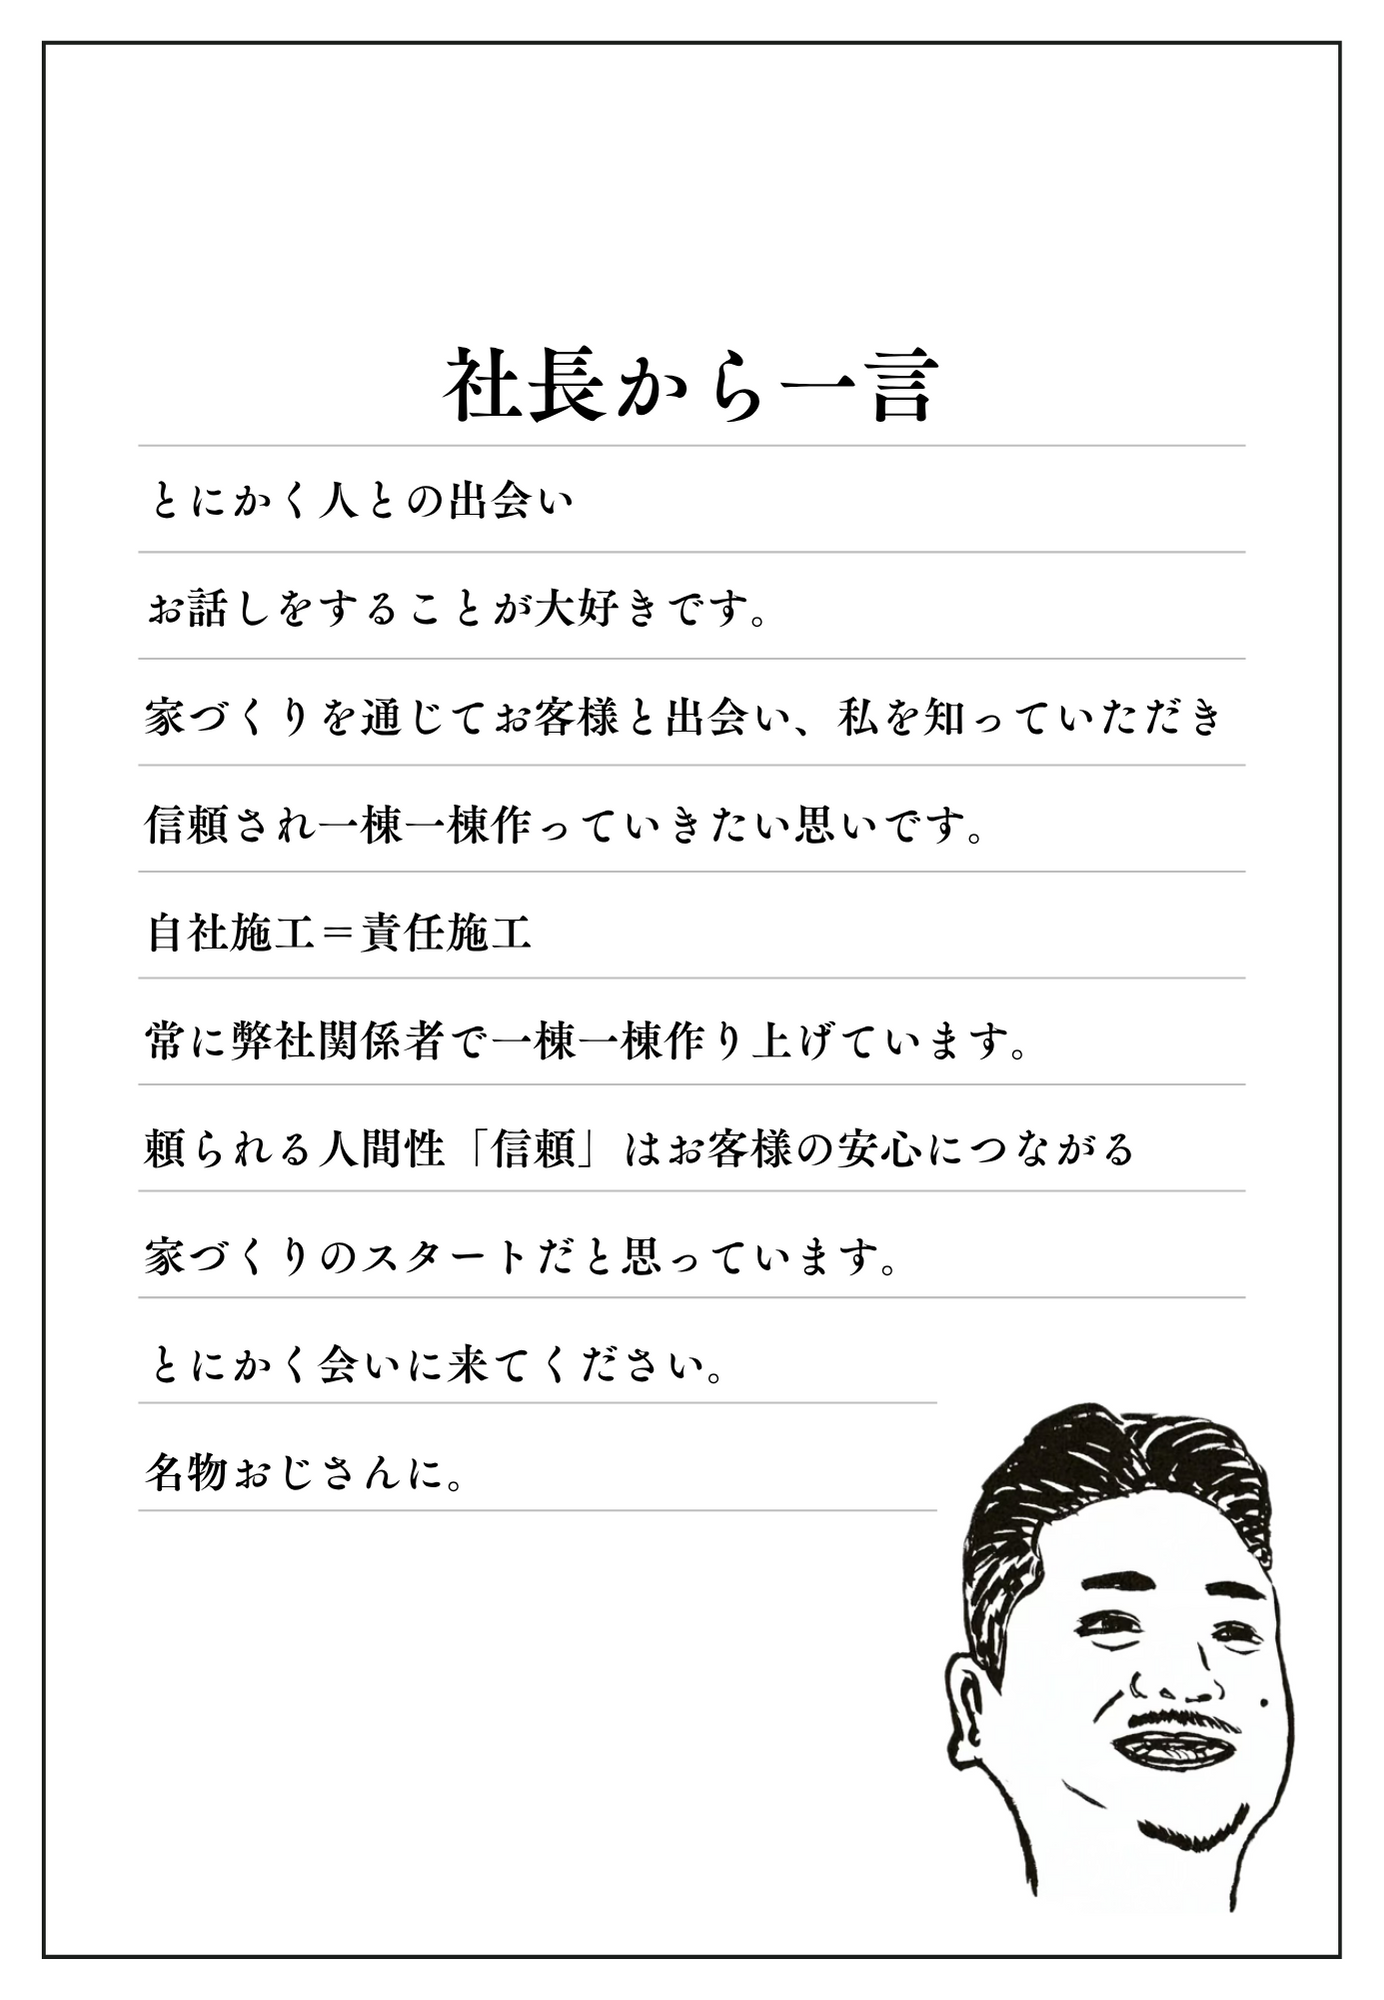 社長から一言
とにかく人との出会い
お話しをすることが大好きです。
家づくりを通じてお客様と出会い、私を知っていただき
信頼され一棟一棟作っていきたい思いです。
自社施工＝責任施工
常に弊社関係者で一棟一棟作り上げています。
頼られる人間性「信頼」はお客様の安心につながる
家づくりのスタートだと思っています。
とにかく会いに来てください。
名物おじさんに。